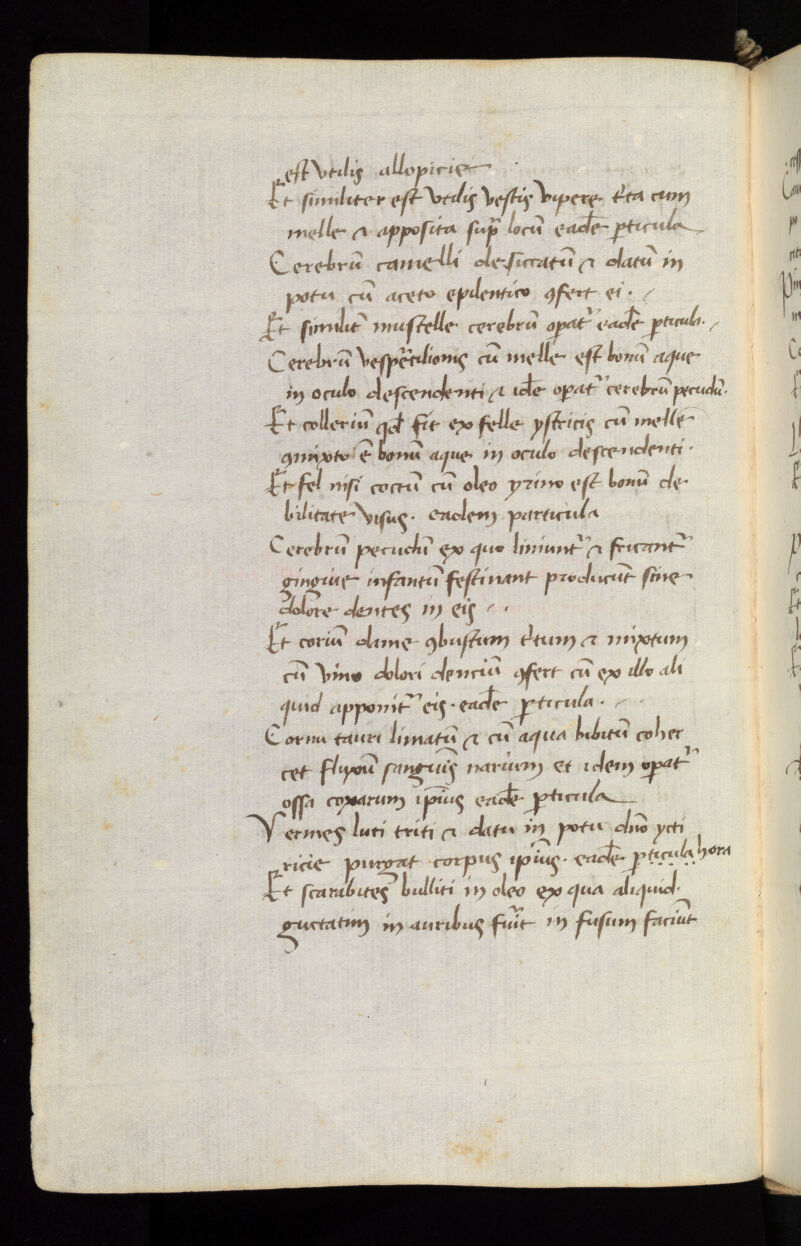 est vtilis allopicie
Et similiter est vtilis vestis vipere t'ta cum
melle & apposita sup̄ locū eadē ꝑticula
Cerebrū camelli desiccatū & datū in
potu cū aceto epilentico ꝯfert ei.
Et similit' mustelle cerebrū oꝑat' eadē ꝑticula.
Cerebrū vesꝑtilionis cū melle est bonū aque
in oculo descendenti & idē oꝑat' cerebrū pecudū.
Et colleriū qd̄ fit ex felle ystricis cū melle
ꝯmixto ē bonū aque in oculo descendenti.
Et fel nisi coctū cū oleo yrino est bonū de
bilitate visus. eadem particula
Cerebrū pecudū ex quo liniunt' & fricant'
gingiue infantū festinant producūt sine
dolore dentes in eis
Et coriū dame ꝯbustum t'tum & mixtum
cū vino dolori denciū ꝯfert cū ex illo ali
quid apponit' eis. eadē ꝑticula.
Cornu tauri limatū & cū aqua bibitū coher
cet fluxū sanguīs narium et idem oꝑat'
ossa coxarum ip̄ius eadē ꝑticula
Vermes luti triti & datu in potu dn̄o ycti
ricie purgat corpus ip̄ius. eadē ꝑticula hora
Et scarabites bulliti in oleo ex qua aliquid
guttatim in auribus fu'it in fusum faciūt